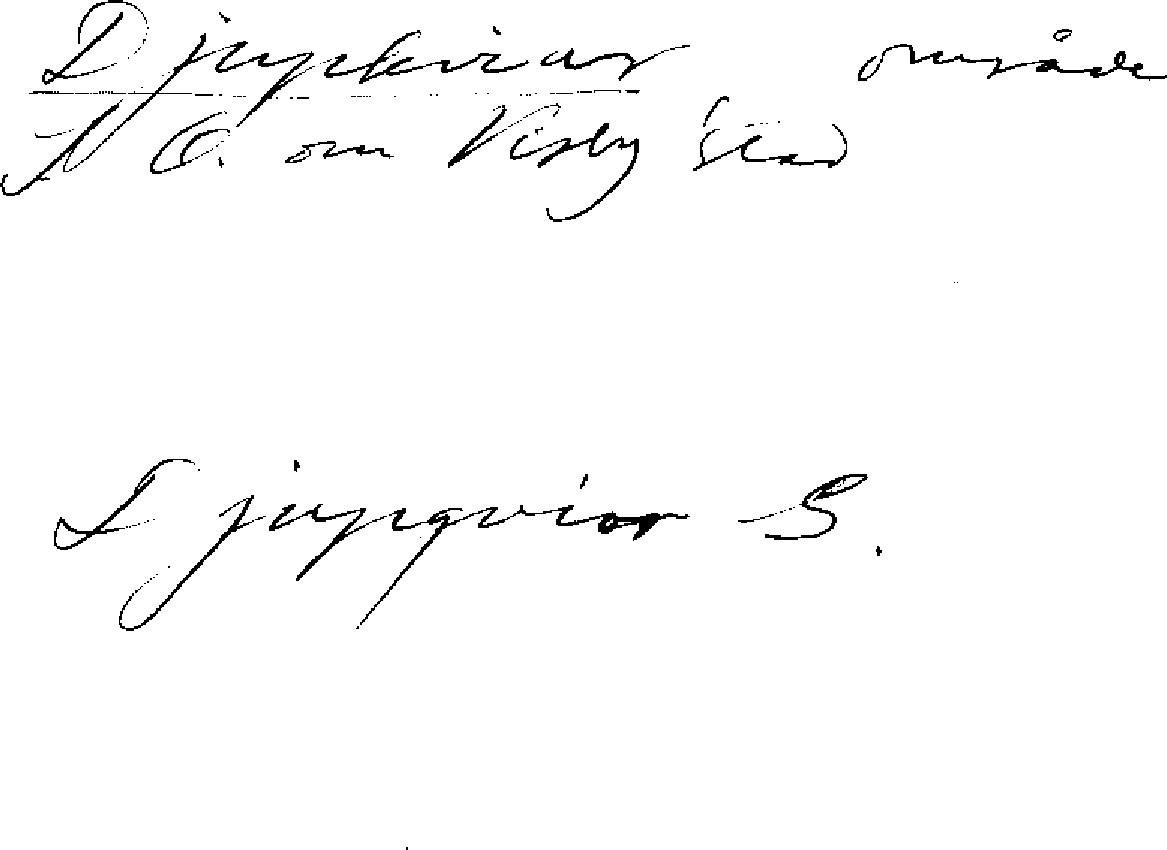 Djupkviar område
N O. om Visby stad
Djupqviar S.